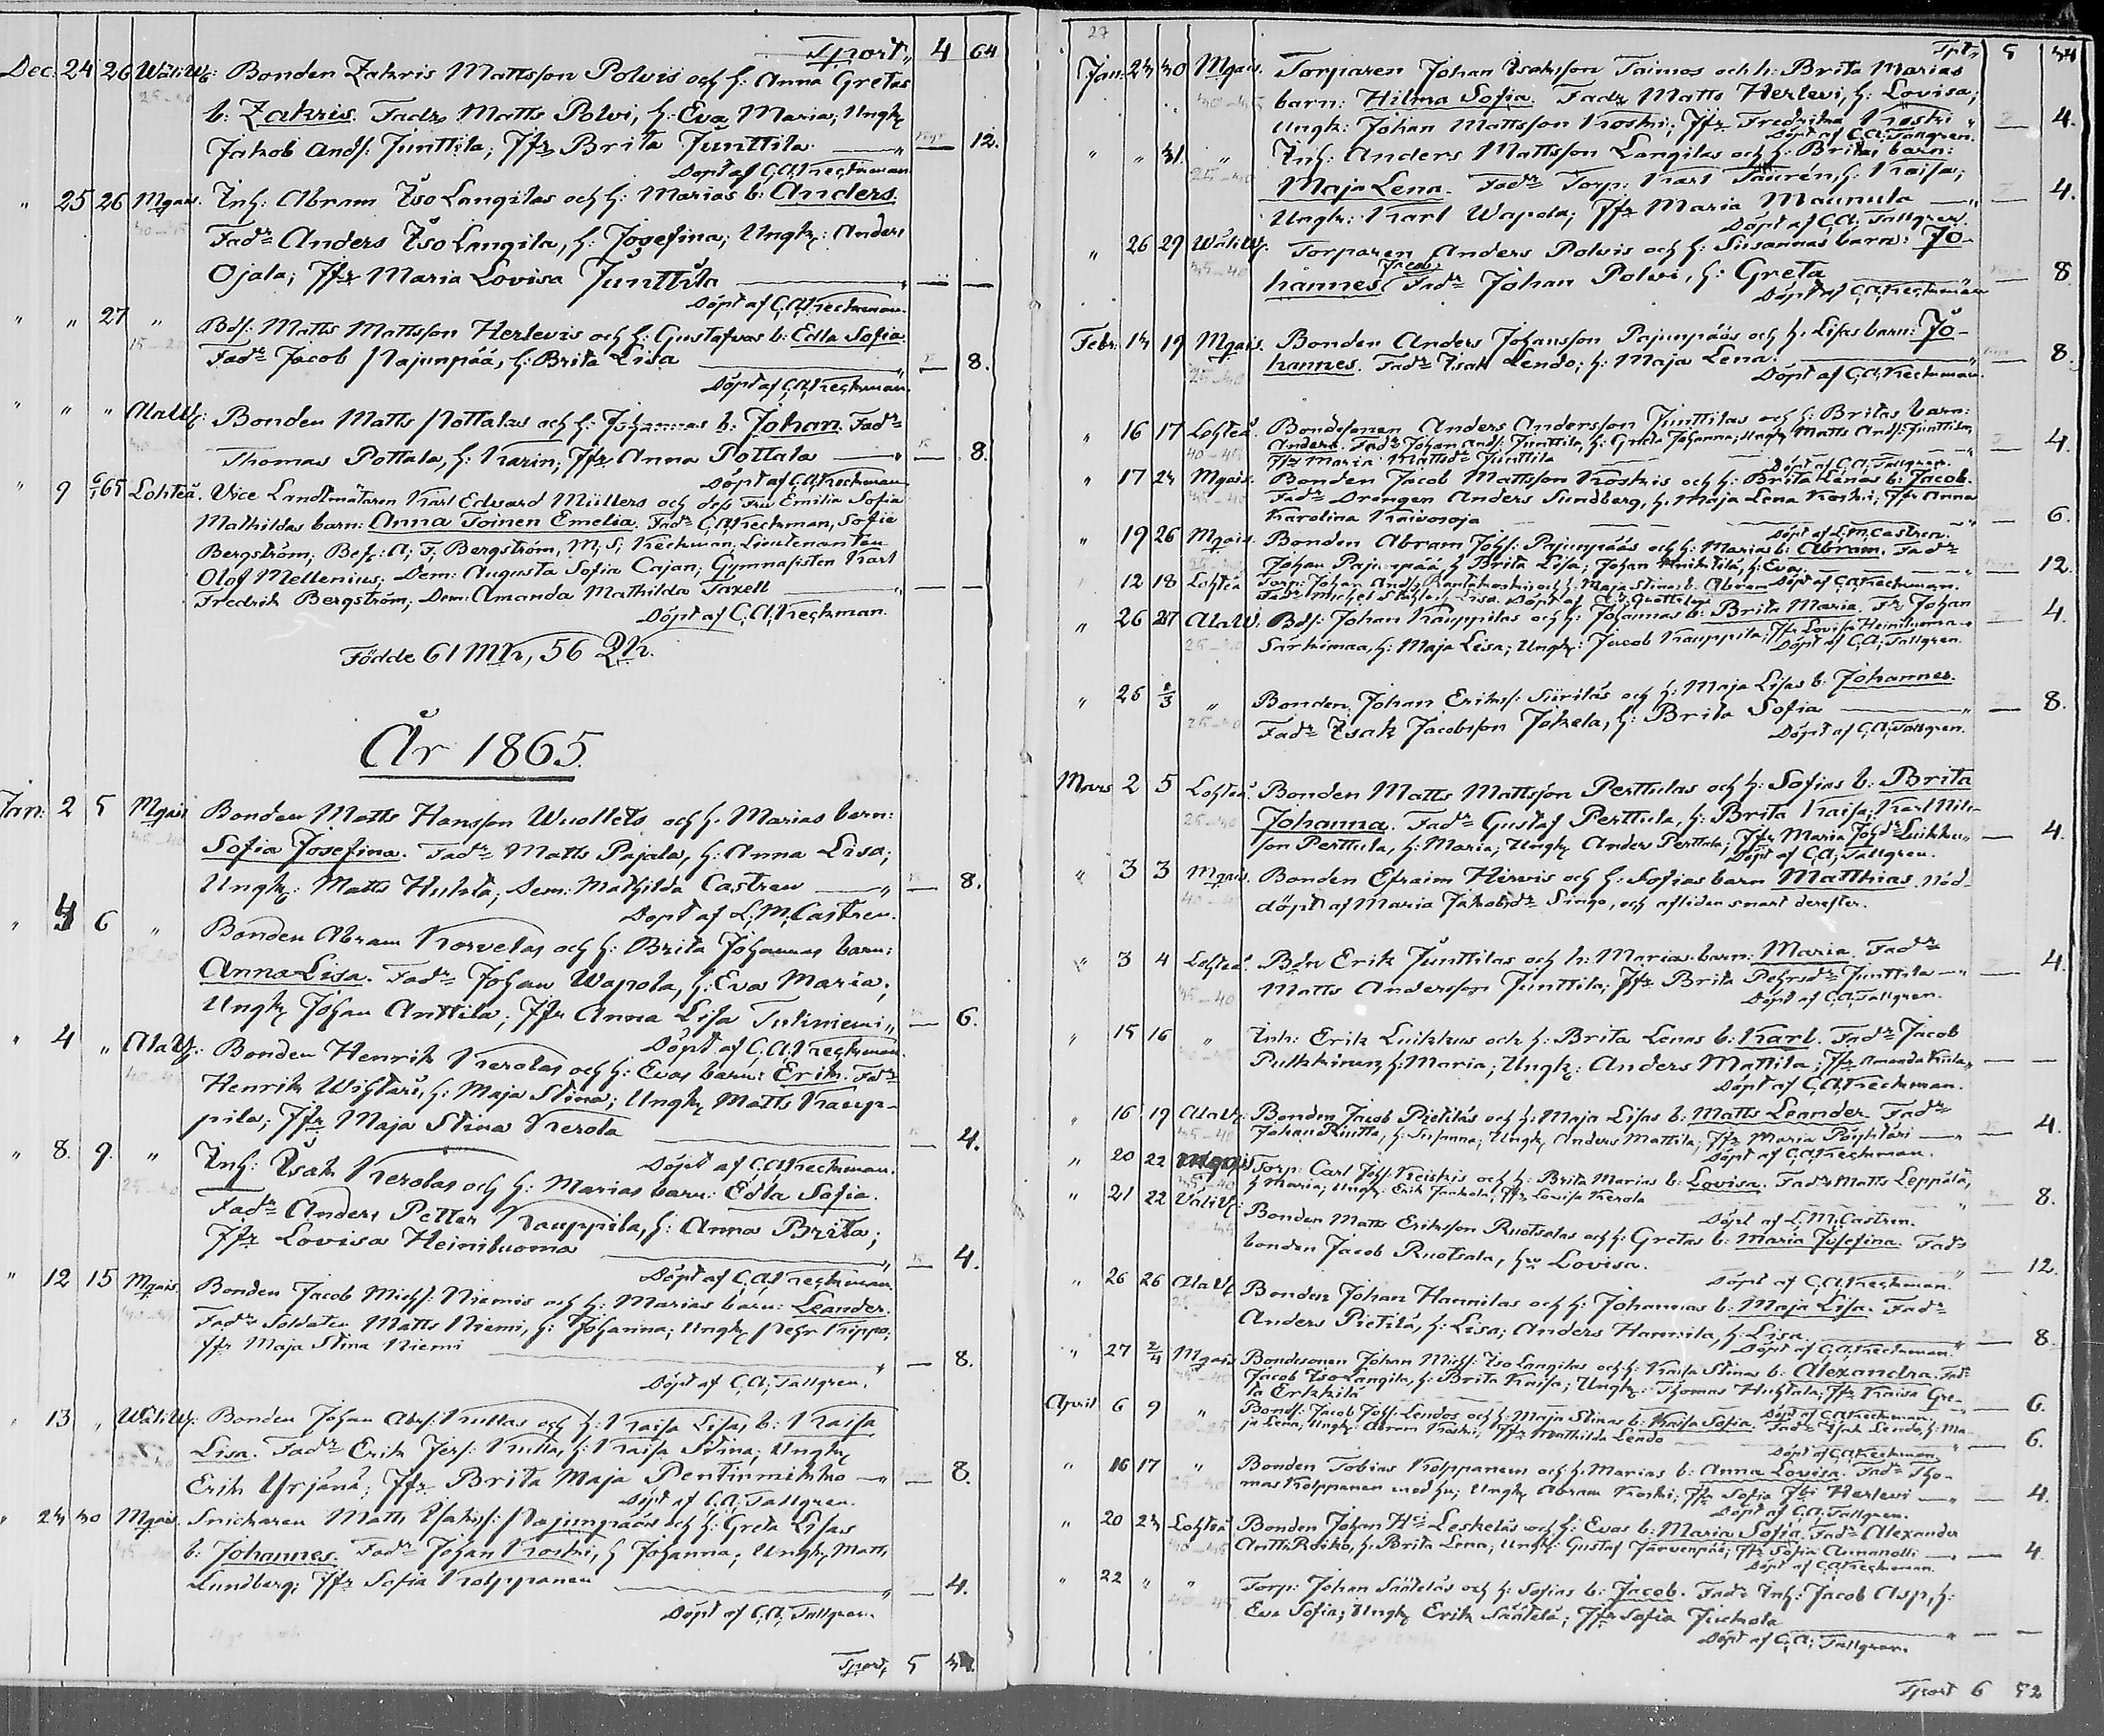 Tport,, 4 64
Dec. 24 26 Wäliw: Bonden Zakris Mattsson Polvis och h: Anna Gretas
b: Zakris. Fadr Matts Polvi, h: Eva Maria; Ungk
Jakob Ands: Junttila; Jfr Brita Junttila — 12.
Döpt af C.A. Keckman.
" 25 26 Mgais. Inh: Abram Iso Langilas och h: Marias b: Anders.
Fadr Anders Iso Langila, h: Josefina; Ungk: Anders
Ojala; Jfr Maria Lovisa Junttila — —
Döpt af C.A. Keckman.
" " 27 " Bds: Matts Mattsson Herlevis och h: Gustafvas b: Edla Sofia.
Fadr Jacob Pajunpää, h: Brita Lisa — 8.
Döpt af C.A. Keckman.
" " " AlaW: Bonden Matts Pottalas och h: Johannas b: Johan. Fadr
Thomas Pottala, h: Karin; Jfr Anna Pottala — 8.
Döpt af C.A. Keckman
" 9 6/1 65 Lohteå. Vice Landtmätaren Karl Edvard Müllers och dess Fru Emilia Sofia
Mathildas barn: Anna Toinen Emelia. Fadr C.A. Keckman, Sofie
Bergström; Bef: A; F; Bergström, M; S; Keckman, Lieutenanten
Olof Mellenius; Dem: Augusta Sofia Cajan; Gymnasisten Karl
Fredrik Bergström; Dem: Amanda Mathilda Taxell — —
Döpt af C; A; Keckman.
Födde 61 Mk, 56 Qk.
År 1865.
Jan: 2 5 Mgais Bonden Matts Hansson Wuollets och h. Marias barn:
Sofia Josefina. Fadr Matts Pajala, h: Anna Lisa;
Ungk: Matts Huhta; Dem: Mathilda Castren — 8.
Döpt af L; M; Castren.
" 4 6 " Bonden Abram Korvelas och h: Brita Johannas barn:
Anna Lisa. Fadr Johan Wapola, h: Eva Maria;
Ungk Johan Anttila; Jfr Anna Lisa Tuliniemi — 6.
Döpt af C.A. Keckman.
" 4 " AlaW: Bonden Henrik Kerolas och h: Evas barn: Erik. Fadr
Henrik Wihtari, h: Maja Stina; Ungk Matts Kaup-
pila; Jfr Maja Stina Kerola — 4.
Döpt af C.A. Keckman.
" 8. 9. " Inh: Isak Kerolas och h: Marias barn: Edla Sofia.
Fadr Anders Petter Kauppila, h: Anna Brita;
Jfr Lovisa Heiniluoma — 4.
Döpt af C.A. Keckman.
" 12 15 Mgais. Bonden Jacob Michs: Niemis och h: Marias barn: Leander.
Fadr Soldaten Matts Niemi, h: Johanna; Ungk Pehr Krippo;
Jfr Maja Stina Niemi — 8.
Döpt af C; A; Tallgren.
" 13 " WäliW: Bonden Johan Abrs: Kullas och h: Kaisa Lisas b: Kaisa
Lisa. Fadr Erik Jers: Kulla, h: Kaisa Stina; Ungk
Erik Yrjänä; Jfr Brita Maja Pentinmikko — 8.
Döpt af C; A; Tallgren.
" 23 30 Mgais. Snickaren Matts Isakss: Pajunpääs och h: Greta Lisas
b: Johannes. Fadr Johan Koski, h Johanna; Ungk Matts
Lundberg; Jfr Sofia Kolppanen — 4.
Döpt af C; A; Tallgren.
Tport, 5
27
Tpt,, 5 34
Jan: 23 30 Mgais. Torparen Johan Isaksson Taimos och h: Brita Marias
barn: Hilma Sofia. Fadr Matts Herlevi, h: Lovisa;
Ungk: Johan Mattsson Koski; Jfr Fredrika Koski — 4.
Döpt af C; A; Tallgren.
" " 31. " Inh: Anders Mattsson Langilas och h: Britas barn:
Maja Lena. Fadr Torp: Karl Tauren, h: Kaisa;
Ungk: Karl Wapola; Jfr Maria Maunula — 4.
Döpt af C; A; Tallgren.
" 26 29 WäliW: Torparen Anders Polvis och h: Susannas barn: Jo-
hannes Jacob. Fadr Johan Polvi, h: Greta — 8
Döpt af C; A; Keckman
Febr: 13 19 Mgais. Bonden Anders Johansson Pajunpääs och h. Lisas barn: Jo-
hannes. Fadr Isak Lendo; h: Maja Lena. — 8.
Döpt af C; A; Keckman.
" 16 17 Lohteå. Bondesonen Anders Andersson Junttilas och h: Britas barn:
Anders. Fadr Johan Ands: Junttila, h: Greta Johanna; Ungk Matts Ands: Junttila;
Jfr Maria Mattsdr Junttila — 4.
Döpt af C; A; Tallgren.
" 17 23 Mgais. Bonden Jacob Mattsson Koskis och h: Brita Lenas b: Jacob.
Fadr Drengen Anders Sundberg, h: Maja Lena Koski; Jfr Anna
Karolina Kaivosoja — 6.
Döpt af L; M; Castren.
" 19 26 Mgais. Bonden Abram Johs: Pajunpääs och h: Marias b: Abram. Fadr
Johan Pajunpää, h Brita Lisa; Johan h: Eva. — 12.
Döpt af C; A; Keckman.
" 12 18 Lohteå Torp: Johan Ands: Rantakoskis och h: Maja Stinas b: Abram
Fadr Michel Ståhle, h: Lisa. Döpt af
" 26 27 AlaW. Bds: Johan Kauppilas och h: Johannas b: Brita Maria. Fr Johan
Särkimaa, h: Maja Lisa; Ungk: Jacob Kauppila; Jfr Lovisa Heiniluoma — 4.
Döpt af C; A; Tallgren.
" 26 1/3 " Bonden Johan Eriks: Siiriläs och h: Maja Lisas b: Johannes.
Fadr Isak Jacobsson Jokela, h: Brita Sofia — 8.
Döpt af C; A; Tallgren.
Mars 2 5 Lohteå. Bonden Matts Mattsson Perttulas och h: Sofias b: Brita
Johanna. Fadr Gustaf Perttula, h: Brita Kaisa; Karl Nils-
son Perttula, h: Maria; Ungk Anders Perttula; Jfr Maria Johdr Luikku — 4.
Döpt af C; A; Tallgren.
" 3 3 Mgais. Bonden Efraim Hirvis och h: Sofias barn Matthias, Nöd-
döpt af Maria Jakobsdr Singo, och afliden snart derefter.
" 3 4 Lohteå. Bdn Erik Junttilas och h: Marias barn: Maria. Fadr
Matts Andersson Junttila; Jfr Brita Pehrsdr Junttila — 4.
Döpt af C; A; Tallgren.
" 15 16 " Inh: Erik Luikkus och h: Brita Lenas b: Karl. Fadr Jacob
Pulkkinen, h: Maria; Ungk: Anders Mattila; Jfr Amanda — —
Döpt af C; A; Keckman.
" 16 19 AlaW: Bonden Jacob Pietiläs och h: Maja Lisas b: Matts Leander. Fadr
Johan Riutta, h: Susanna; Ungk Anders Mattila; Jfr Maria Pöyhtäri — 4.
Döpt af C; A; Keckman.
" 20 22 Mgais Torp: Carl Johs: Keiskis och h: Brita Marias b: Lovisa. Fadr Matts Leppälä,
h Maria; Ungk: Erik Jankola; Jfr Lovisa Kerola — 8.
Döpt af L; M; Castren.
" 21 22 WäliW: Bonden Matts Eriksson Ruotsalas och h: Gretas b: Maria Josefina. Fadr
bonden Jacob Ruotsala, hu Lovisa. — 12.
Döpt af C; A; Keckman.
" 26 26 AlaW Bonden Johan Hannilas och h: Johannas b: Maja Lisa. Fadr
Anders Pietilä, h: Lisa; Anders Hannila, h: Lisa. — 8.
Döpt af C; A; Keckman.
" 27 2/4 Mgais Bondesonen Johan Michs: Iso Langilas och h: Kaisa Stinas b: Alexandra. Fadr
Jacob Iso Langila, h: Brita Kaisa; Ungk: Thomas Huhtala; Jfr Kaisa Gre-
ta Erkkilä — 6.
Döpt af C; A; Keckman.
April 6 9 " Bonds: Jacob Johs: Lendos och h: Maja Stinas b: Kaisa Sofia. Fadr Isak Lendo, h: Ma-
ja Lena; Ungk: Abram Koski; Jfr Mathilda Lendo — 6.
Döpt af C; A; Keckman.
" 16 17 " Bonden Tobias Kolppanens och h: Marias b: Anna Lovisa. Fadr Tho-
mas Kolppanen med hu; Ungk Abram Koski; Jfr Sofia Herlevi — 4.
Döpt af C; A; Tallgren.
" 20 23 Lohteå Bonden Johan Leskeläs och h: Evas b: Maria Sofia. Fadr Alexander
Antti Roiko, h: Brita Lena; Ungk: Gustaf Järvenpää; Jfr Sofia Annanolli — 4.
Döpt af C; A; Keckman.
" 22 " " Torp: Johan Säätäläs och h: Sofias b: Jacob. Fadr Inh: Jacob Asp, h:
Eva Sofia; Ungk Erik Säätelä; Jfr Sofia Juckola — —
Döpt af C; A; Tallgren.
Tport 6 52